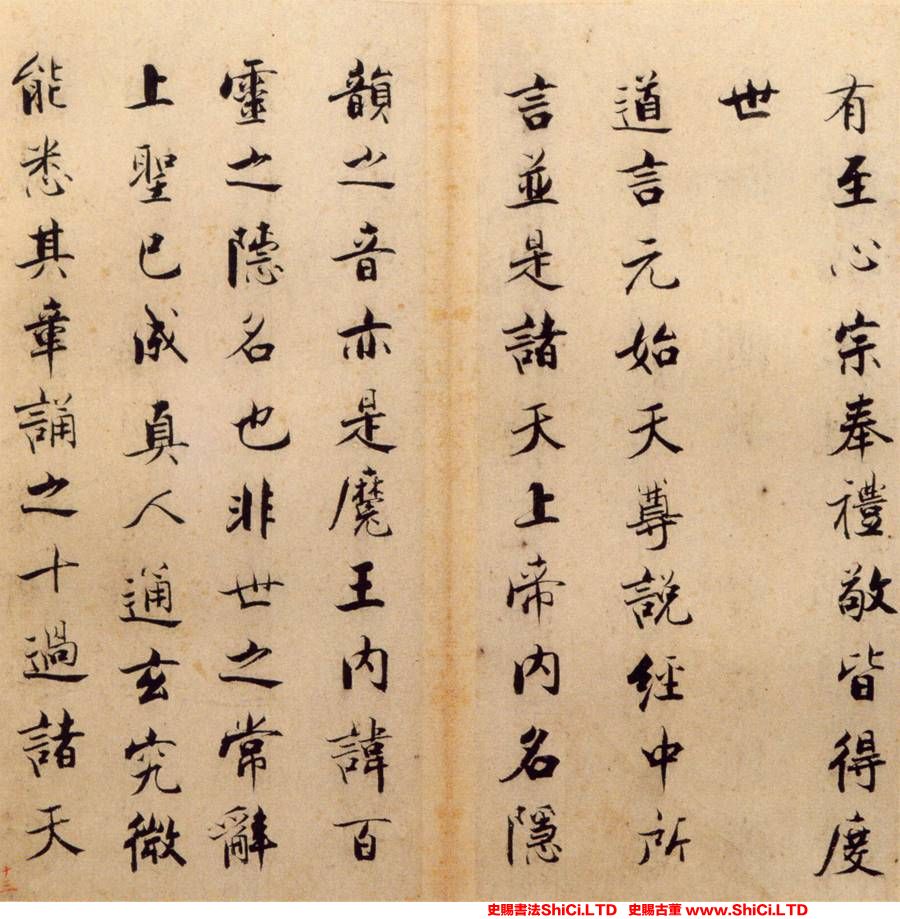 有至心宗奉禮敬皆得度
世
道言元始天尊說經中所
言並是諸天上帝内名隱
韻之音亦是魔王内諱百
靈之隱名也非世之常辭
上聖已成真人通玄究微
能悉其章誦之十過諸天
十三
史賜書法ShiCi.LTD 史賜古董 www.ShiCi.LTD